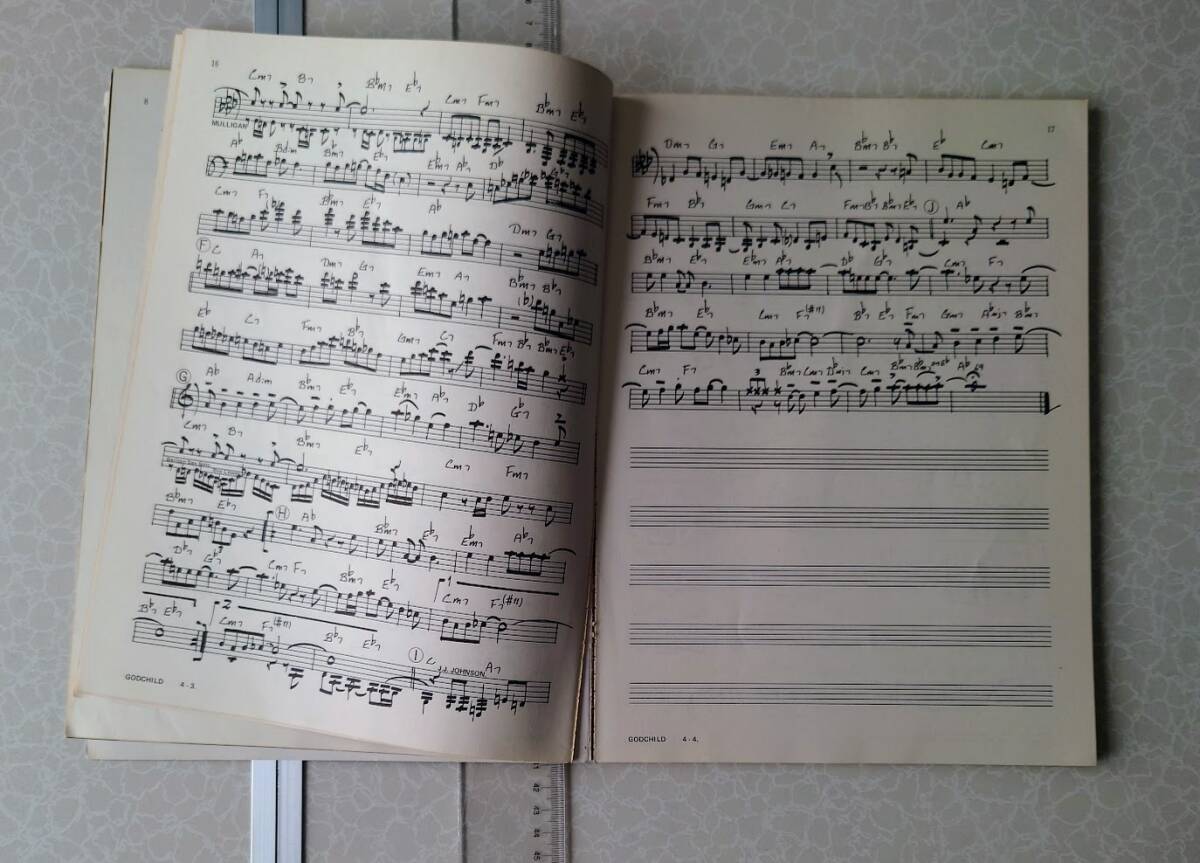 16
Cm7 B7 B♭m7 E♭7 Cm7 Fm7 B♭m7 E♭7
MULLIGAN
A♭ Bdim B♭m7 E♭7 E♭m7 A♭7 D♭ G♭7
Cm7 F7 B♭m7 E♭7 A♭ Dm7 G7
F C A7 Dm7 G7 Em7 A7 B♭m7 B♭7
E♭ C7 Fm7 B♭7 Gm7 C7 Fm7 B♭7 B♭m7 E♭7
G A♭ Adim B♭m7 E♭7 E♭m7 A♭7 D♭ G♭7
Cm7 B7 B♭m7 E♭7 Cm7 Fm7
B♭m7 E♭7 H A♭ B♭m7 E♭7 E♭m7 A♭7
D♭7 G♭7 Cm7 F7 B♭m7 E♭7 1 Cm7 F7(#11)
B♭7 E♭7 2 Cm7 F7(#11) B♭7 E♭7 I C J.J. JOHNSON A7
GODCHILD 4-3.
17
Dm7 G7 Em7 A7 B♭m7 B♭7 E♭ Cm7
Fm7 B♭7 Gm7 C7 Fm7 B♭7 B♭m7 E♭7 J A♭
B♭m7 E♭7 E♭m7 A♭7 D♭ G♭7 Cm7 F7
B♭m7 E♭7 Cm7 F7(#11) B♭7 E♭7 Fm7 Gm7 A♭maj7 B♭m7
Cm7 F7 3 B♭m7 Cm7 D♭maj7 Cm7 B♭m7 A♭
GODCHILD 4-4.
8
41
42
43
44
45